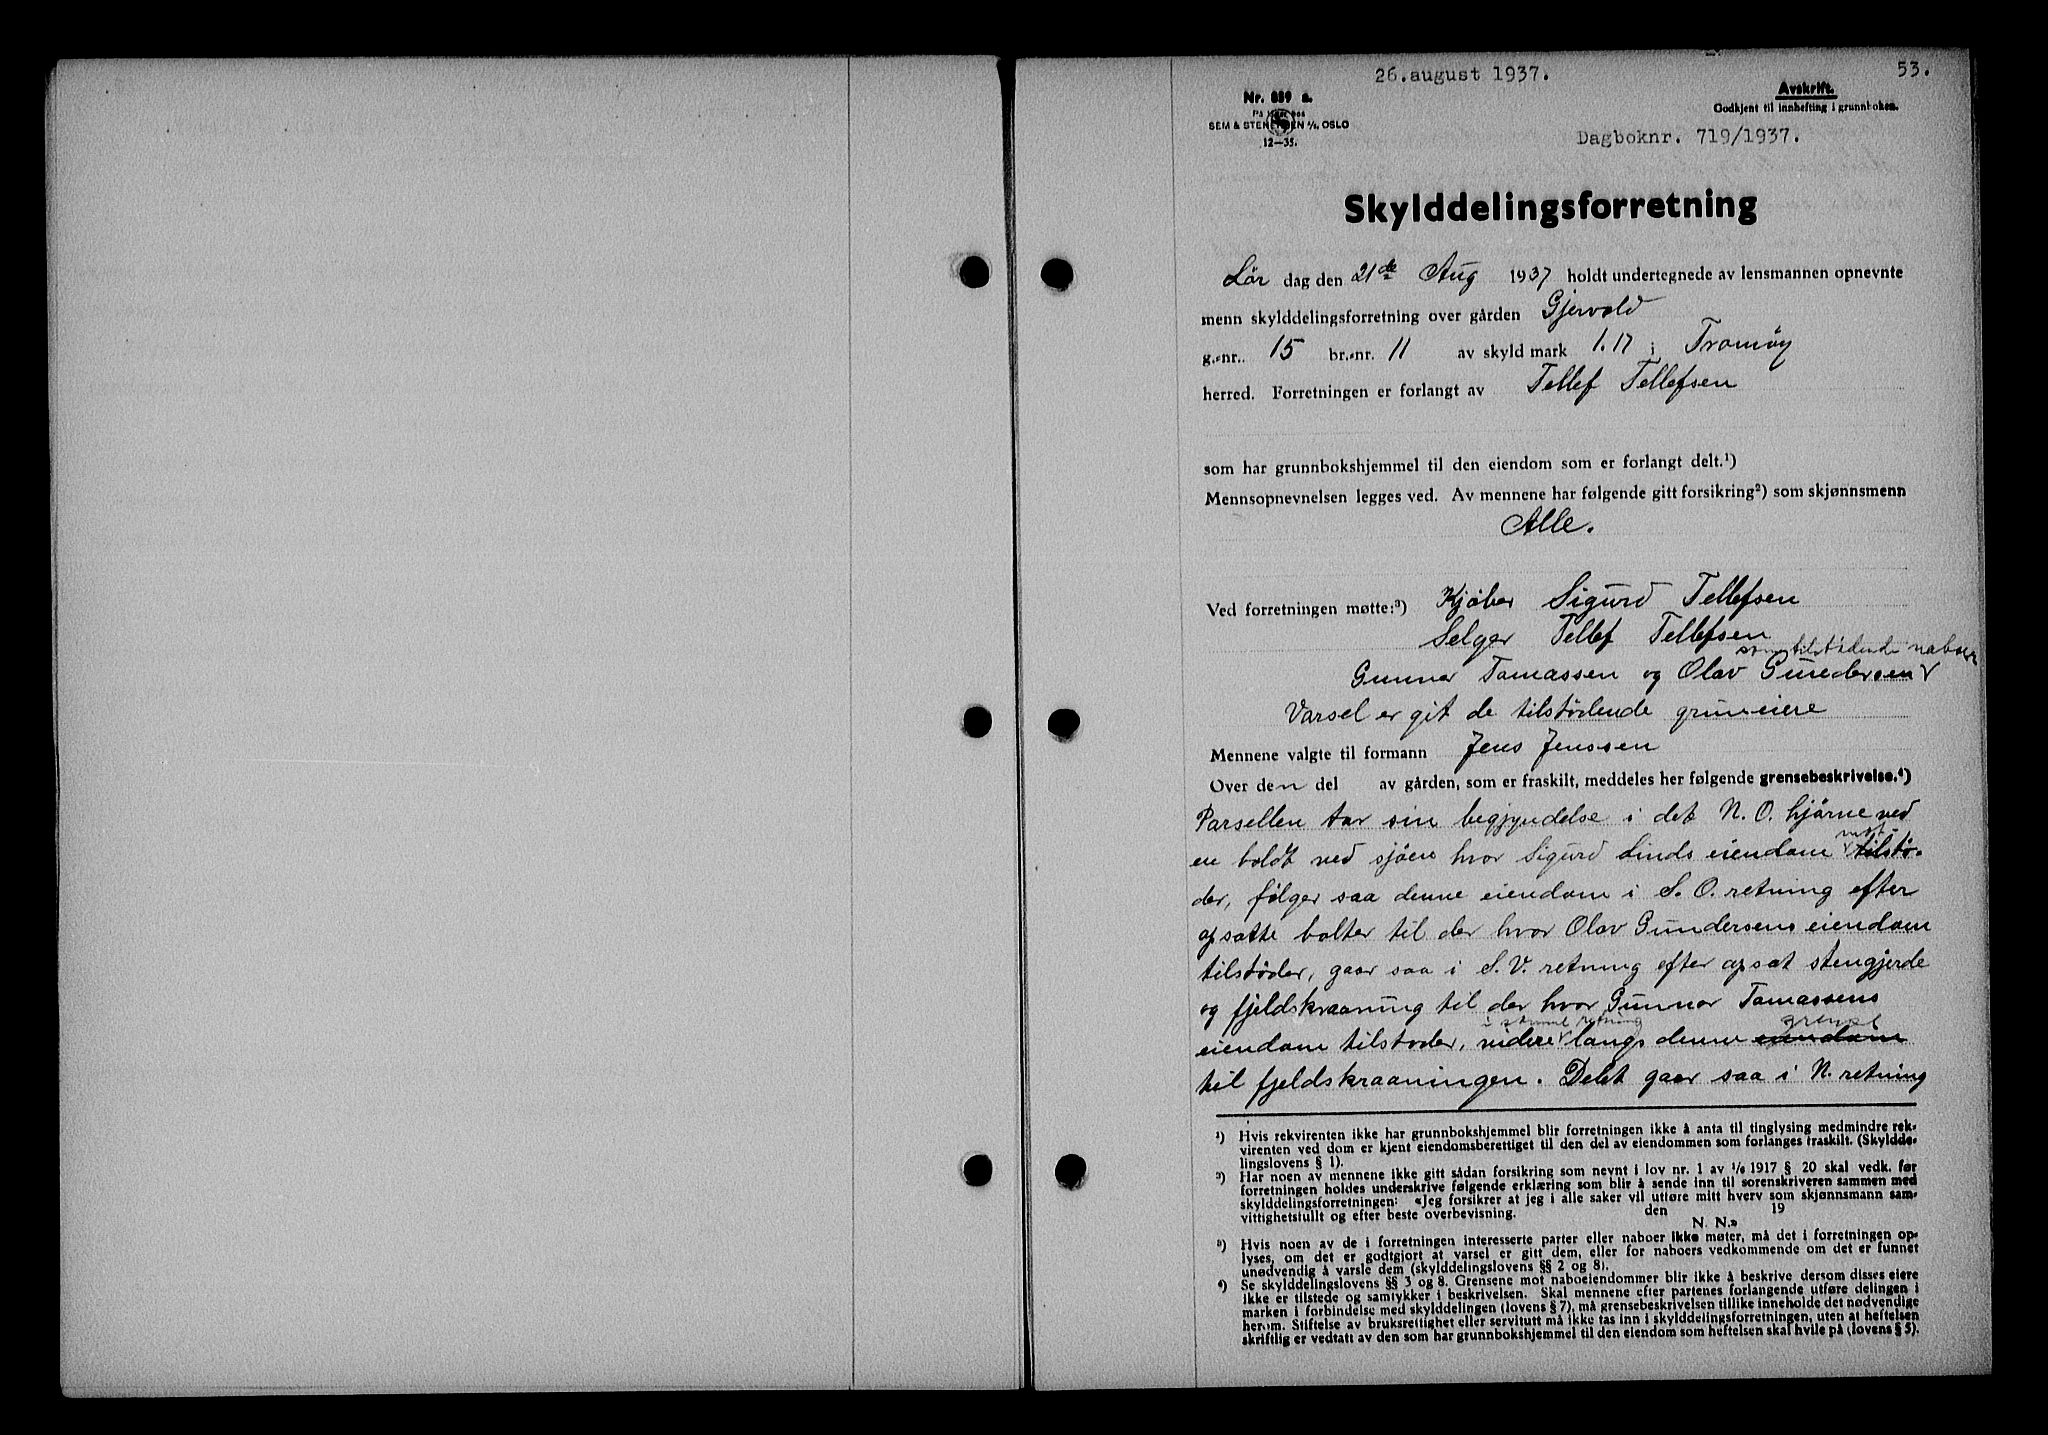 26.august 1937.
53.
Nr. 889 a.
Avskrift.
Godkjent til innhefting i grunnboken.
SEM & STENERSEN A/S, OSLO
12—35.
Dagboknr. 719/1937.
Skylddelingsforretning
Lör dag den 21de Aug 1937 holdt undertegnede av lensmannen opnevnte
menn skylddelingsforretning over gården Gjervold
g.-nr. 15 br.-nr. 11 av skyld mark 1.17 i Tromöy
herred. Forretningen er forlangt av Tellef Tellefsen
som har grunnbokshjemmel til den eiendom som er forlangt delt.¹)
Mennsopnevnelsen legges ved. Av mennene har følgende gitt forsikring²) som skjønnsmenn
Alle.
Ved forretningen møtte:³) Kjöber Sigurd Tellefsen
Selger Tellef Tellefsen
som tilstödende naboer
Gunnar Tomassen og Olav Gundersen
Varsel er git de tilstödende gruneiere
Mennene valgte til formann Jens Jenssen
Over den del av gården, som er fraskilt, meddeles her følgende grensebeskrivelse.⁴)
Parsellen tar sin begjyndelse i det N. O. hjörne ved
en boldt ved sjöen hvor Sigurd Linds eiendom mot tilstö-
der, fölger saa denne eiendom i S. O. retning efter
opsatte bolter til der hvor Olav Gundersens eiendom
tilstöder, gaar saa i S. V. retning efter opsat stengjerde
og fjeldskraaning til der hvor Gunnar Tomassens
i samme retning grense
eiendom tilstoder, videre langs denne eiendom
til fjeldskraaningen. Delet gaar saa i N. retning
¹) Hvis rekvirenten ikke har grunnbokshjemmel blir forretningen ikke å anta til tinglysing medmindre rek-
virenten ved dom er kjent eiendomsberettiget til den del av eiendommen som forlanges fraskilt. (Skyldde-
lingslovens § 1).
²) Har noen av mennene ikke gitt sådan forsikring som nevnt i lov nr. 1 av 1/6 1917 § 20 skal vedk. før
forretningen holdes underskrive følgende erklæring som blir å sende inn til sorenskriveren sammen med
skylddelingsforretningen: «Jeg forsikrer at jeg i alle saker vil utføre mitt hverv som skjønnsmann sam-
vittighetsfullt og efter beste overbevisning. den 19
N. N.»
³) Hvis noen av de i forretningen interesserte parter eller naboer ikke møter, må det i forretningen op-
lyses, om det er godtgjort at varsel er gitt dem, eller for naboers vedkommende om det er funnet
unødvendig å varsle dem (skylddelingslovens §§ 2 og 8).
⁴) Se skylddelingslovens §§ 3 og 8. Grensene mot naboeiendommer blir ikke å beskrive dersom disses eiere
ikke er tilstede og samtykker i beskrivelsen. Skal mennene efter partenes forlangende utføre delingen i
marken i forbindelse med skylddelingen (lovens § 7), må grensebeskrivelsen tillike inneholde det nødvendige
herom. Stiftelse av bruksrettighet eller servitutt må ikke tas inn i skylddelingsforretningen, uten at heftelsen
skriftlig er vedtatt av den som har grunnbokshjemmel til den eiendom som heftelsen skal hvile på (lovens § 5).